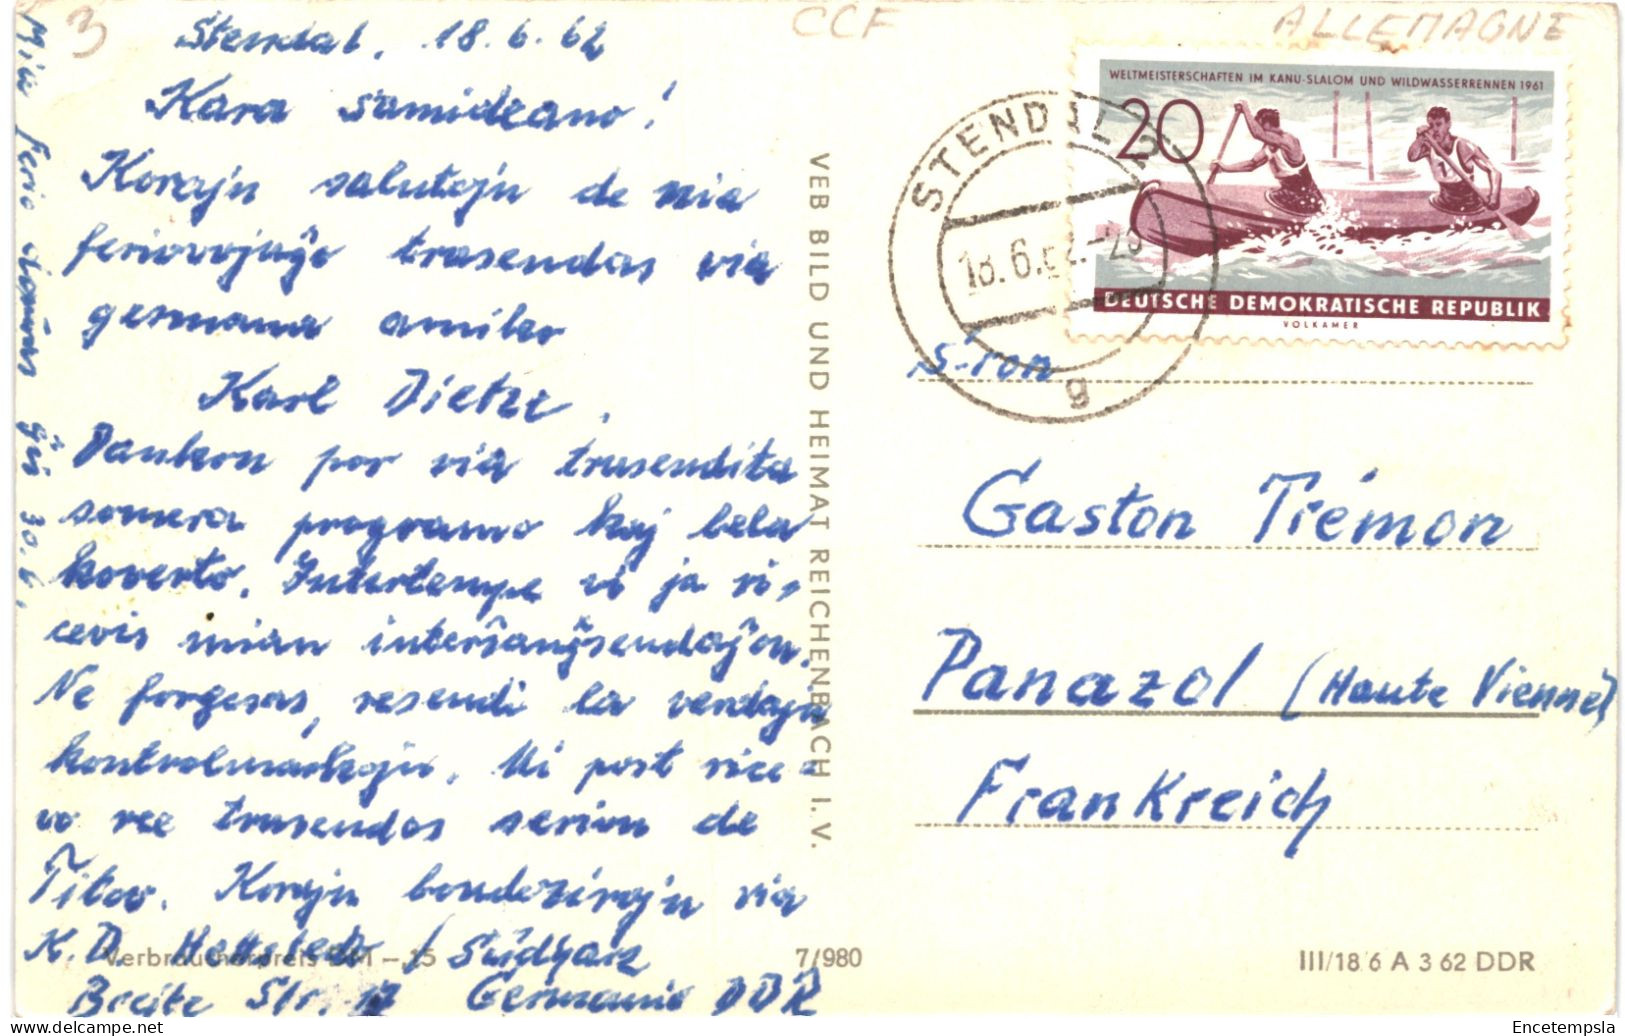 3
CCF
ALLEMAGNE
Stendal, 18.6.62
Kara samideano!
Korajn salutojn de mia
feriovojaĝo trasendas via
germana amiko
Karl Dietze.
Dankon por via trasendita
somera programo kaj bela
koverto. Intertempe vi ja ri-
cevis mian interŝanĝsendaĵon.
Ne forgesas, resendi la verdajn
kontrolmarkojn. Mi post rice-
vo ree trasendos serion de
Titov. Korajn bondezirojn via
K. D. Hettstedt / Südharz
Breite Str. 17 Germanio DDR
Mia ferio daŭras ĝis 30.6.
VEB BILD UND HEIMAT REICHENBACH I. V.
WELTMEISTERSCHAFTEN IM KANU-SLALOM UND WILDWASSERRENNEN 1961
20
DEUTSCHE DEMOKRATISCHE REPUBLIK
VOLKAMER
STENDAL
18.6.62.-20
g
S-ron
Gaston Trémon
Panazol (Haute Vienne)
Frankreich
Verbraucherpreis DM -,15
7/980
III/18/6 A 3 62 DDR
Encetempsla